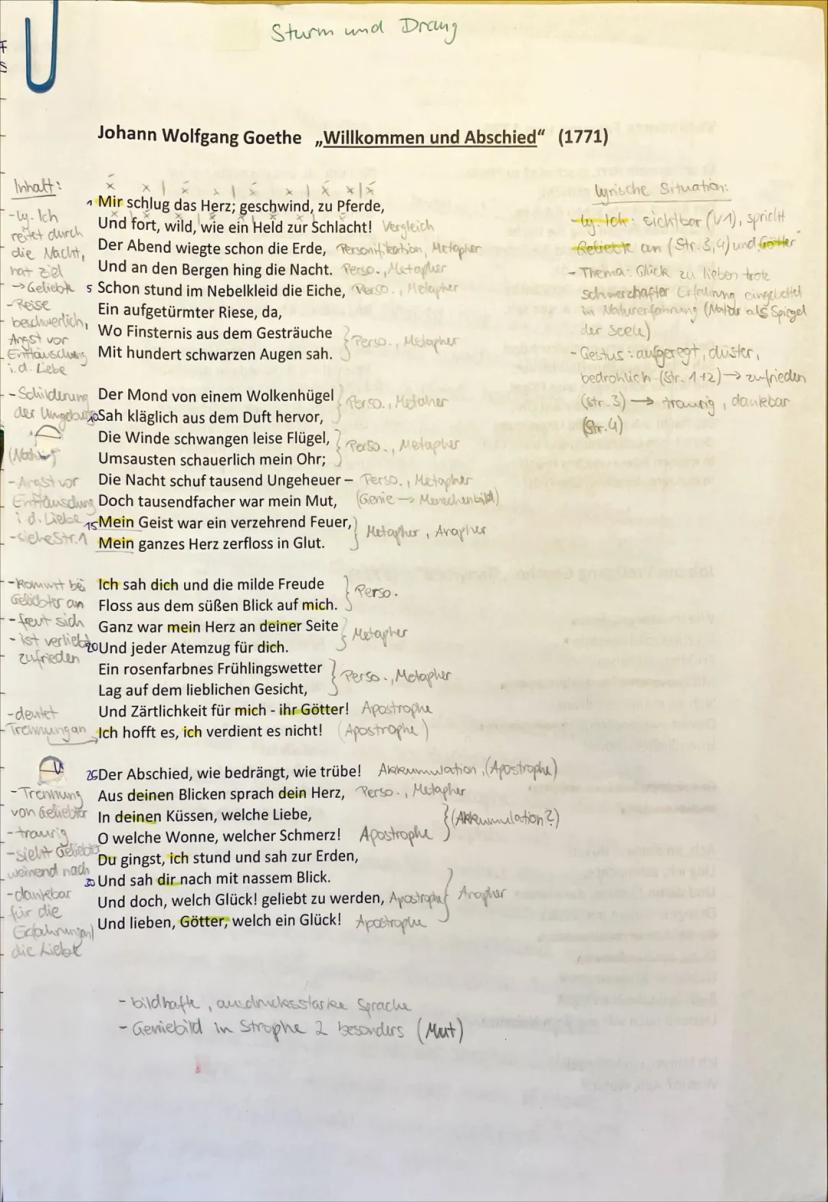 Sturm und Drang
Johann Wolfgang Goethe „Willkommen und Abschied“ (1771)
Inhalt:
-ly. Ich
reitet durch
die Nacht,
hat Ziel
→ Geliebte
-Reise
beschwerlich,
Angst vor
Enttäuschung
i.d. Liebe
1 Mir schlug das Herz; geschwind, zu Pferde,
Und fort, wild, wie ein Held zur Schlacht! Vergleich
Der Abend wiegte schon die Erde, Personifikation, Metapher
Und an den Bergen hing die Nacht. Perso., Metapher
5 Schon stund im Nebelkleid die Eiche, Perso., Metapher
Ein aufgetürmter Riese, da,
Wo Finsternis aus dem Gesträuche
Mit hundert schwarzen Augen sah.
Perso., Metapher
lyrische Situation:
-ly. Ich: sichtbar (V1), spricht
Geliebte an (Str. 3,4) und Götter
- Thema: Glück zu lieben trotz
schmerzhafter Erfahrung eingebettet
in Naturerfahrung (Natur als Spiegel
der Seele)
- Gestus: aufgeregt, düster,
bedrohlich (Str. 1+2) → zufrieden
(Str. 3) → traurig, dankbar
(Str. 4)
- Schilderung
der Umgebung
(Nacht)
- Angst vor
Enttäuschung
i.d. Liebe
- siehe Str. 1
Der Mond von einem Wolkenhügel
10 Sah kläglich aus dem Duft hervor,
Perso., Metapher
Die Winde schwangen leise Flügel,
Umsausten schauerlich mein Ohr;
Perso., Metapher
Die Nacht schuf tausend Ungeheuer – Perso., Metapher
Doch tausendfacher war mein Mut, (Genie → Menschenbild)
15 Mein Geist war ein verzehrend Feuer,
Mein ganzes Herz zerfloss in Glut.
Metapher, Anapher
- kommt bei
Geliebter an
- freut sich
- ist verliebt
zufrieden
-deutet
Trennung an
Ich sah dich und die milde Freude
Floss aus dem süßen Blick auf mich.
Perso.
Ganz war mein Herz an deiner Seite
20 Und jeder Atemzug für dich.
Metapher
Ein rosenfarbnes Frühlingswetter
Lag auf dem lieblichen Gesicht,
Perso., Metapher
Und Zärtlichkeit für mich - ihr Götter! Apostrophe
Ich hofft es, ich verdient es nicht! (Apostrophe)
- Trennung
von Geliebter
- traurig
- sieht Geliebte
weinend nach
- dankbar
für die
Erfahrung(en)
die Liebe
25 Der Abschied, wie bedrängt, wie trübe! Akkumulation, (Apostrophe)
Aus deinen Blicken sprach dein Herz, Perso., Metapher
In deinen Küssen, welche Liebe,
O welche Wonne, welcher Schmerz! Apostrophe
(Akkumulation?)
Du gingst, ich stund und sah zur Erden,
30 Und sah dir nach mit nassem Blick.
Und doch, welch Glück! geliebt zu werden, Apostrophe
Und lieben, Götter, welch ein Glück! Apostrophe
Anapher
- bildhafte, ausdrucksstarke Sprache
- Geniebild in Strophe 2 besonders (Mut)